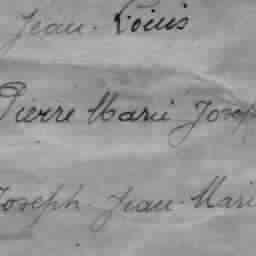 Jean. Louis
Pierre Marie Joseph
Joseph Jean Marie